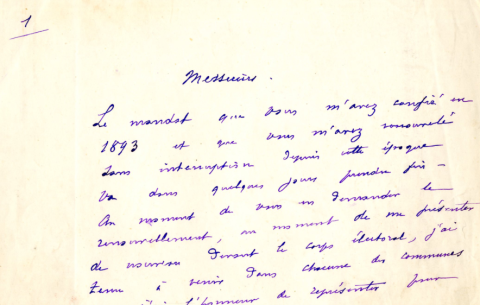 1
Messieurs.
Le mandat que vous m'avez confié en
1893 et que vous m'avez renouvelé
sans interruption depuis cette époque
va dans quelques jours prendre fin —
Au moment de vous en demander le
renouvellement, au moment de me présenter
de nouveau devant le corps électoral, j'ai
tenu à venir dans chacune des communes
l'honneur de représenter pour